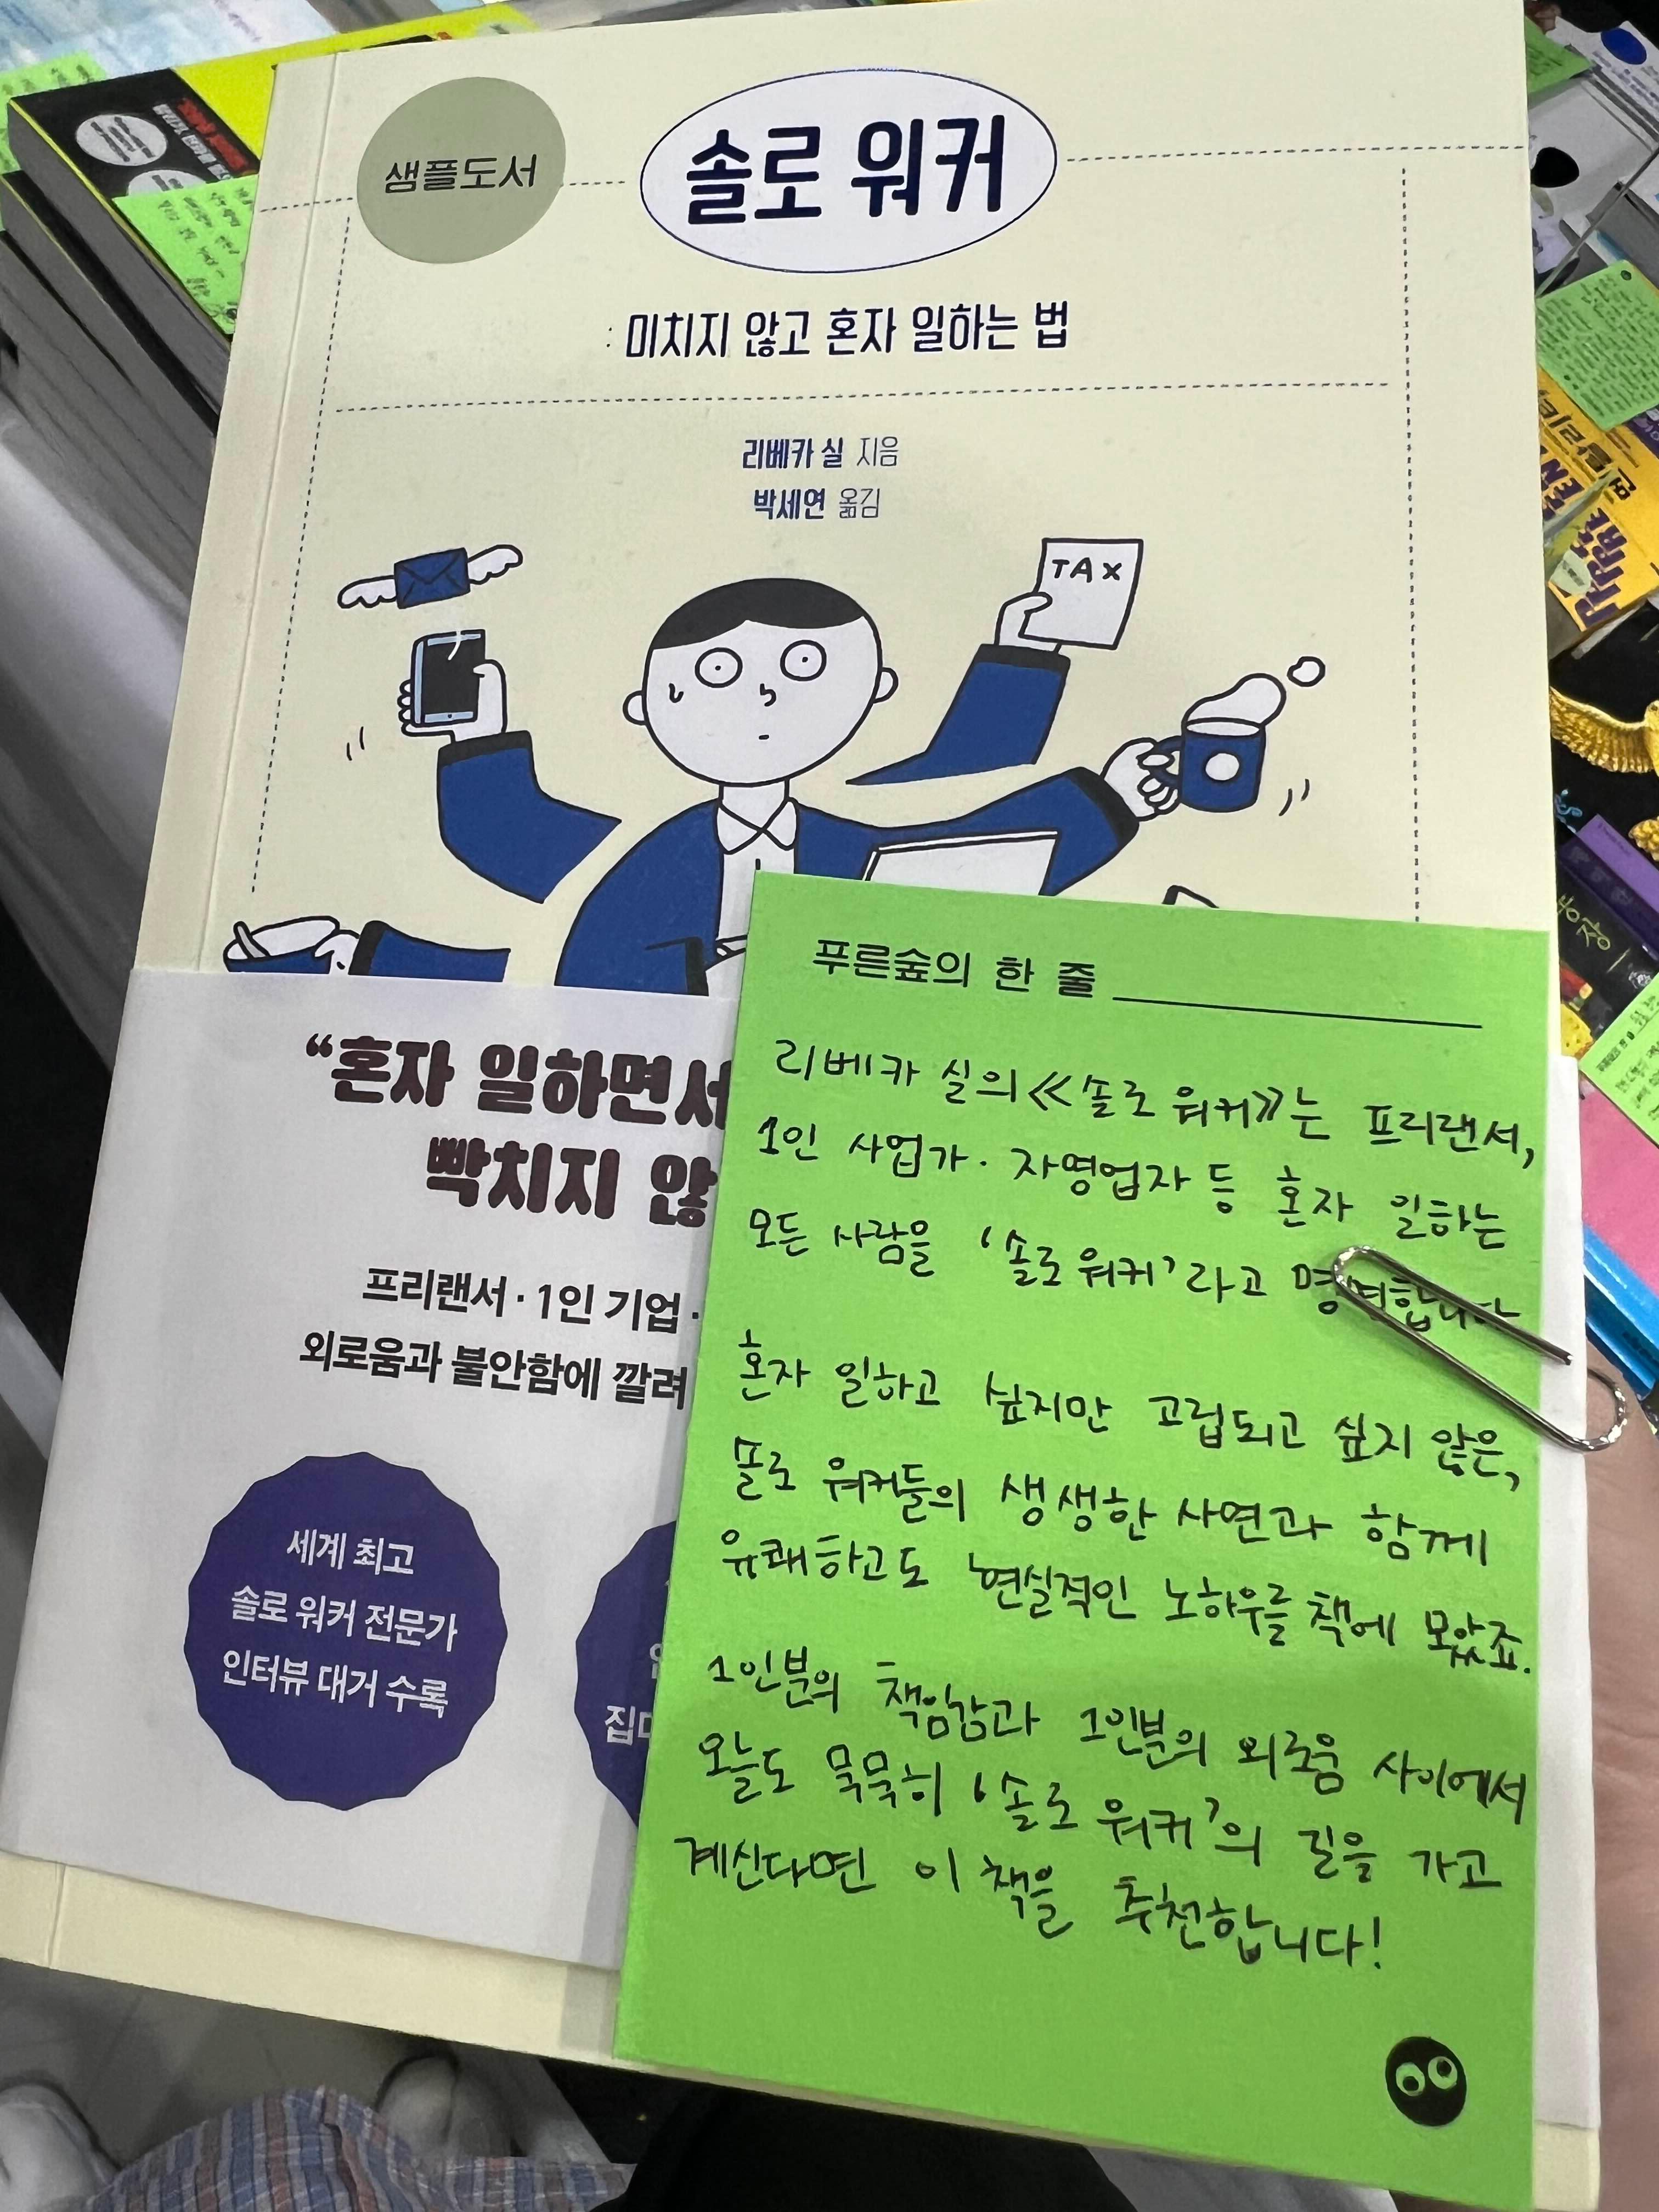 샘플도서
솔로 워커
: 미치지 않고 혼자 일하는 법
리베카 실 지음
박세연 옮김
TAX
"혼자 일하면서
빡치지 않
프리랜서 · 1인 기업 ·
외로움과 불안함에 깔려
세계 최고
솔로 워커 전문가
인터뷰 대거 수록
푸른숲의 한 줄
리베카 실의 《솔로 워커》는 프리랜서,
1인 사업가· 자영업자 등 혼자 일하는
모든 사람을 '솔로 워커'라고 명명합니다
혼자 일하고 싶지만 고립되고 싶지 않은,
솔로 워커들의 생생한 사연과 함께
유쾌하고도 현실적인 노하우를 책에 모았죠.
1인분의 책임감과 1인분의 외로움 사이에서
오늘도 묵묵히 '솔로 워커'의 길을 가고
계신다면 이 책을 추천합니다!